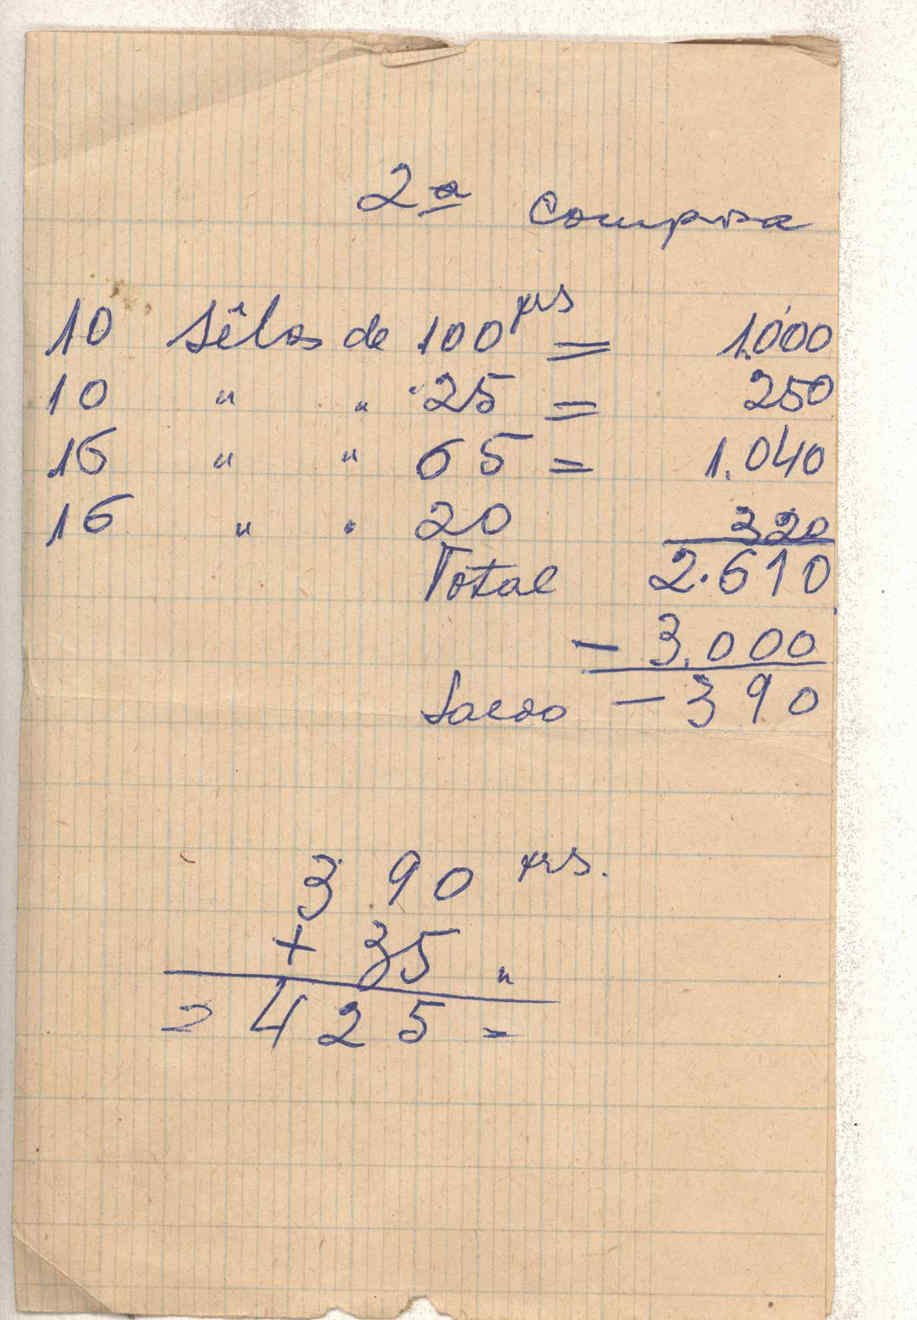 2ª Compra
10 Sêlos de 100 xrs = 1.000
10 " " 25 = 250
16 " " 65 = 1.040
16 " " 20 320
Total 2.610
- 3.000
Saldo - 390
3 90 xrs.
+ 35 "
= 425 =